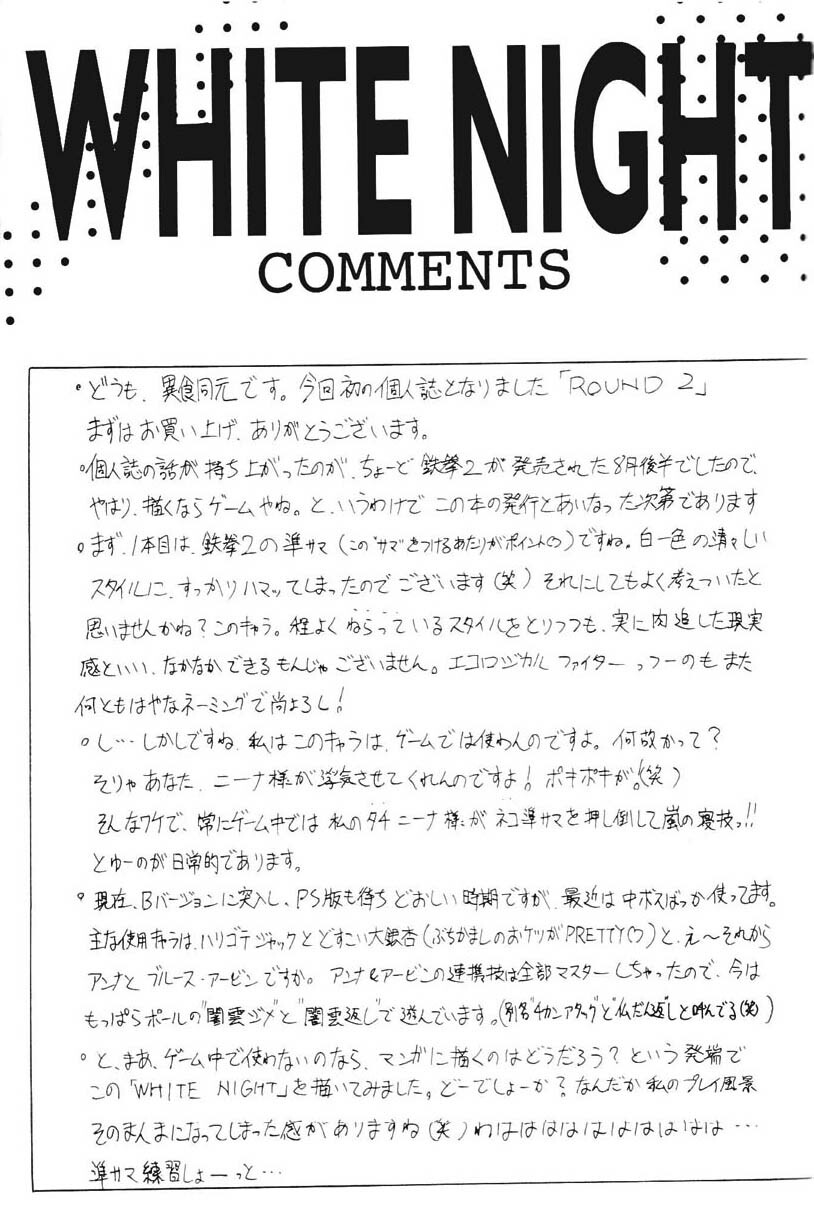 WHITE NIGHT
COMMENTS
•どうも、異食同元です。今回初の個人誌となりました「ROUND 2」
まずはお買い上げ、ありがとうございます。
•個人誌の話が持ち上がったのが、ちょーど鉄拳2が発売された8月後半でしたので、
やはり、描くならゲームやね。と、いうわけでこの本の発行とあいなった次第であります
•まず、1本目は、鉄拳2の準サマ(この"サマ"をつけるあたりがポイント♡)ですね。白一色の清々しい
スタイルに、すっかりハマッてしまったのでございます(笑)それにしてもよく考えついたと
思いませんかね?このキャラ。程よくねらっているスタイルをとりつつも、実に肉迫した現実
感といい、なかなかできるもんじゃございません。エコロジカルファイターっつーのもまた
何ともはやなネーミングで尚よろし!
•し…しかしですね、私はこのキャラは、ゲームでは使わんのですよ。何故かって?
そりゃあなた、ニーナ様が浮気させてくれんのですよ!ポキポキが。(笑)
そんなワケで、常にゲーム中では私のタチニーナ様がネコ準サマを押し倒して嵐の寝技っ!!
とゆーのが日常的であります。
•現在、Bバージョンに突入し、PS版も待ちどおしい時期ですが、最近は中ボスばっか使ってます。
主な使用キャラは、ハリゴテジャックとどすこい大銀杏(ぶちかましのおケツがPRETTY♡)と、え〜それから
アンナとブルース・アービンですか。アンナ&アービンの連携技は全部マスターしちゃったので、今は
もっぱらポールの"闇雲ジメ"と"闇雲返し"で遊んでいます。(別名"チカンアタック"と"仏だん返し"と呼んでる(笑)
•と、まあ、ゲーム中で使わないのなら、マンガに描くのはどうだろう?という発端で
この「WHITE NIGHT」を描いてみました。どーでしょーか?なんだか私のプレイ風景
そのまんまになってしまった感がありますね(笑)わははははははははは…
準サマ練習しょーっと…